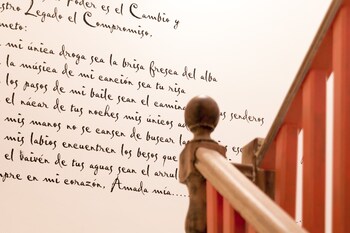 Poder es el Cambio y
stro Legado el Compromiso.
meto:
mi única droga sea la brisa fresca del alba
la música de mi canción sea tu risa
los pasos de mi baile sean el camino senderos
el nácar de tus noches mis únicos
mis manos no se cansen de buscar
mis labios encuentren los besos que
el baivén de tus aguas sean el arrul
pre en mi corazón. Amada mía.....